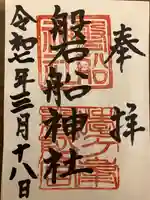 奉拝
磐船神社
令和七年三月十八日